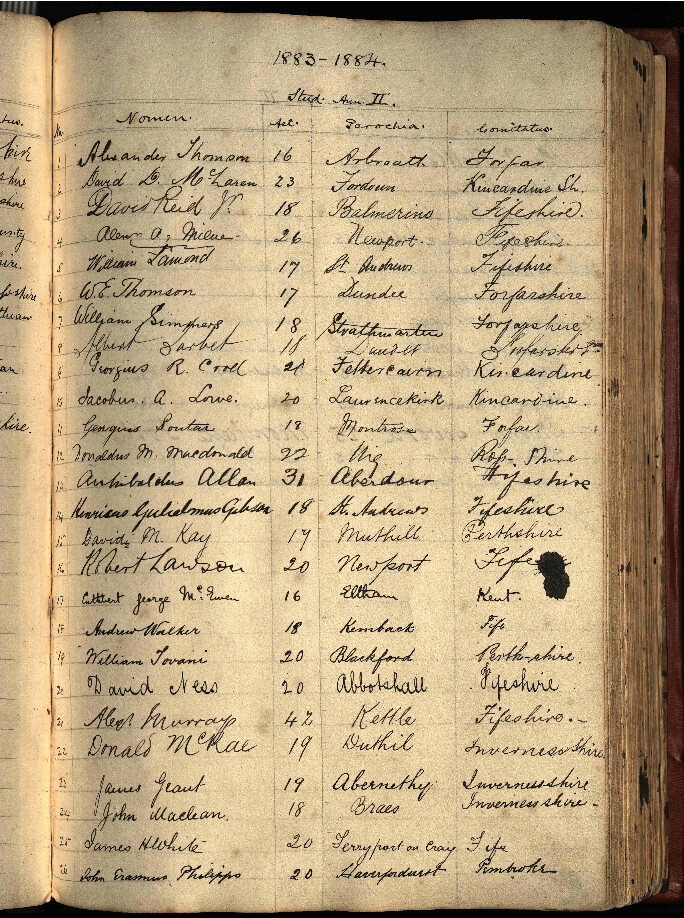 1883-1884.
Stud. Ann. II.
No. Nomen. Aet. Parochia. Comitatus.
1 Alexander Thomson 16 Arbroath Forfar
2 David D. McLaren 23 Fordoun Kincardine Sh.
3 David Reid Jr. 18 Balmerino Fifeshire.
4 Alexr. A. Milne. 26 Newport. Fifeshire
5 William Lamond 17 St Andrews Fifeshire
6 W.E. Thomson 17 Dundee Forfarshire
7 William Simmers 18 Strathmartine Forfarshire
8 Albert 18 Forfarshire
9 Georgius R. 21 Fettercairn Kincardine
10 Jacobus. A. Lowe. 20 Laurencekirk Kincardine.
11 Georgius Soutar 18 Montrose Forfar.
12 Donaldus M. Macdonald 22 Uig Ross-Shire
13 Archibaldus Allan 31 Aberdour Fifeshire
14 Henricus Gulielmus Gibson 18 St. Andrews Fifeshire
15 David M. Kay 17 Muthill Perthshire
16 Robert Lawson 20 Newport Fife
17 Cuthbert George McEwen 16 Eltham Kent.
18 Andrew Walker 18 Kemback Fife
19 William Tovani 20 Blackford Perth-shire.
20 David Ness 20 Abbotshall Fifeshire
21 Alexr Murray 42 Kettle Fifeshire.-
22 Donald McRae 19 Duthil Inverness Shire.
23 James Grant 19 Abernethy Invernessshire
24 John Maclean. 18 Braes Invernessshire-
25 James H White 20 Ferryport on Craig Fife
26 John Erasmus Philipps 20 Haverfordwest Pembroke